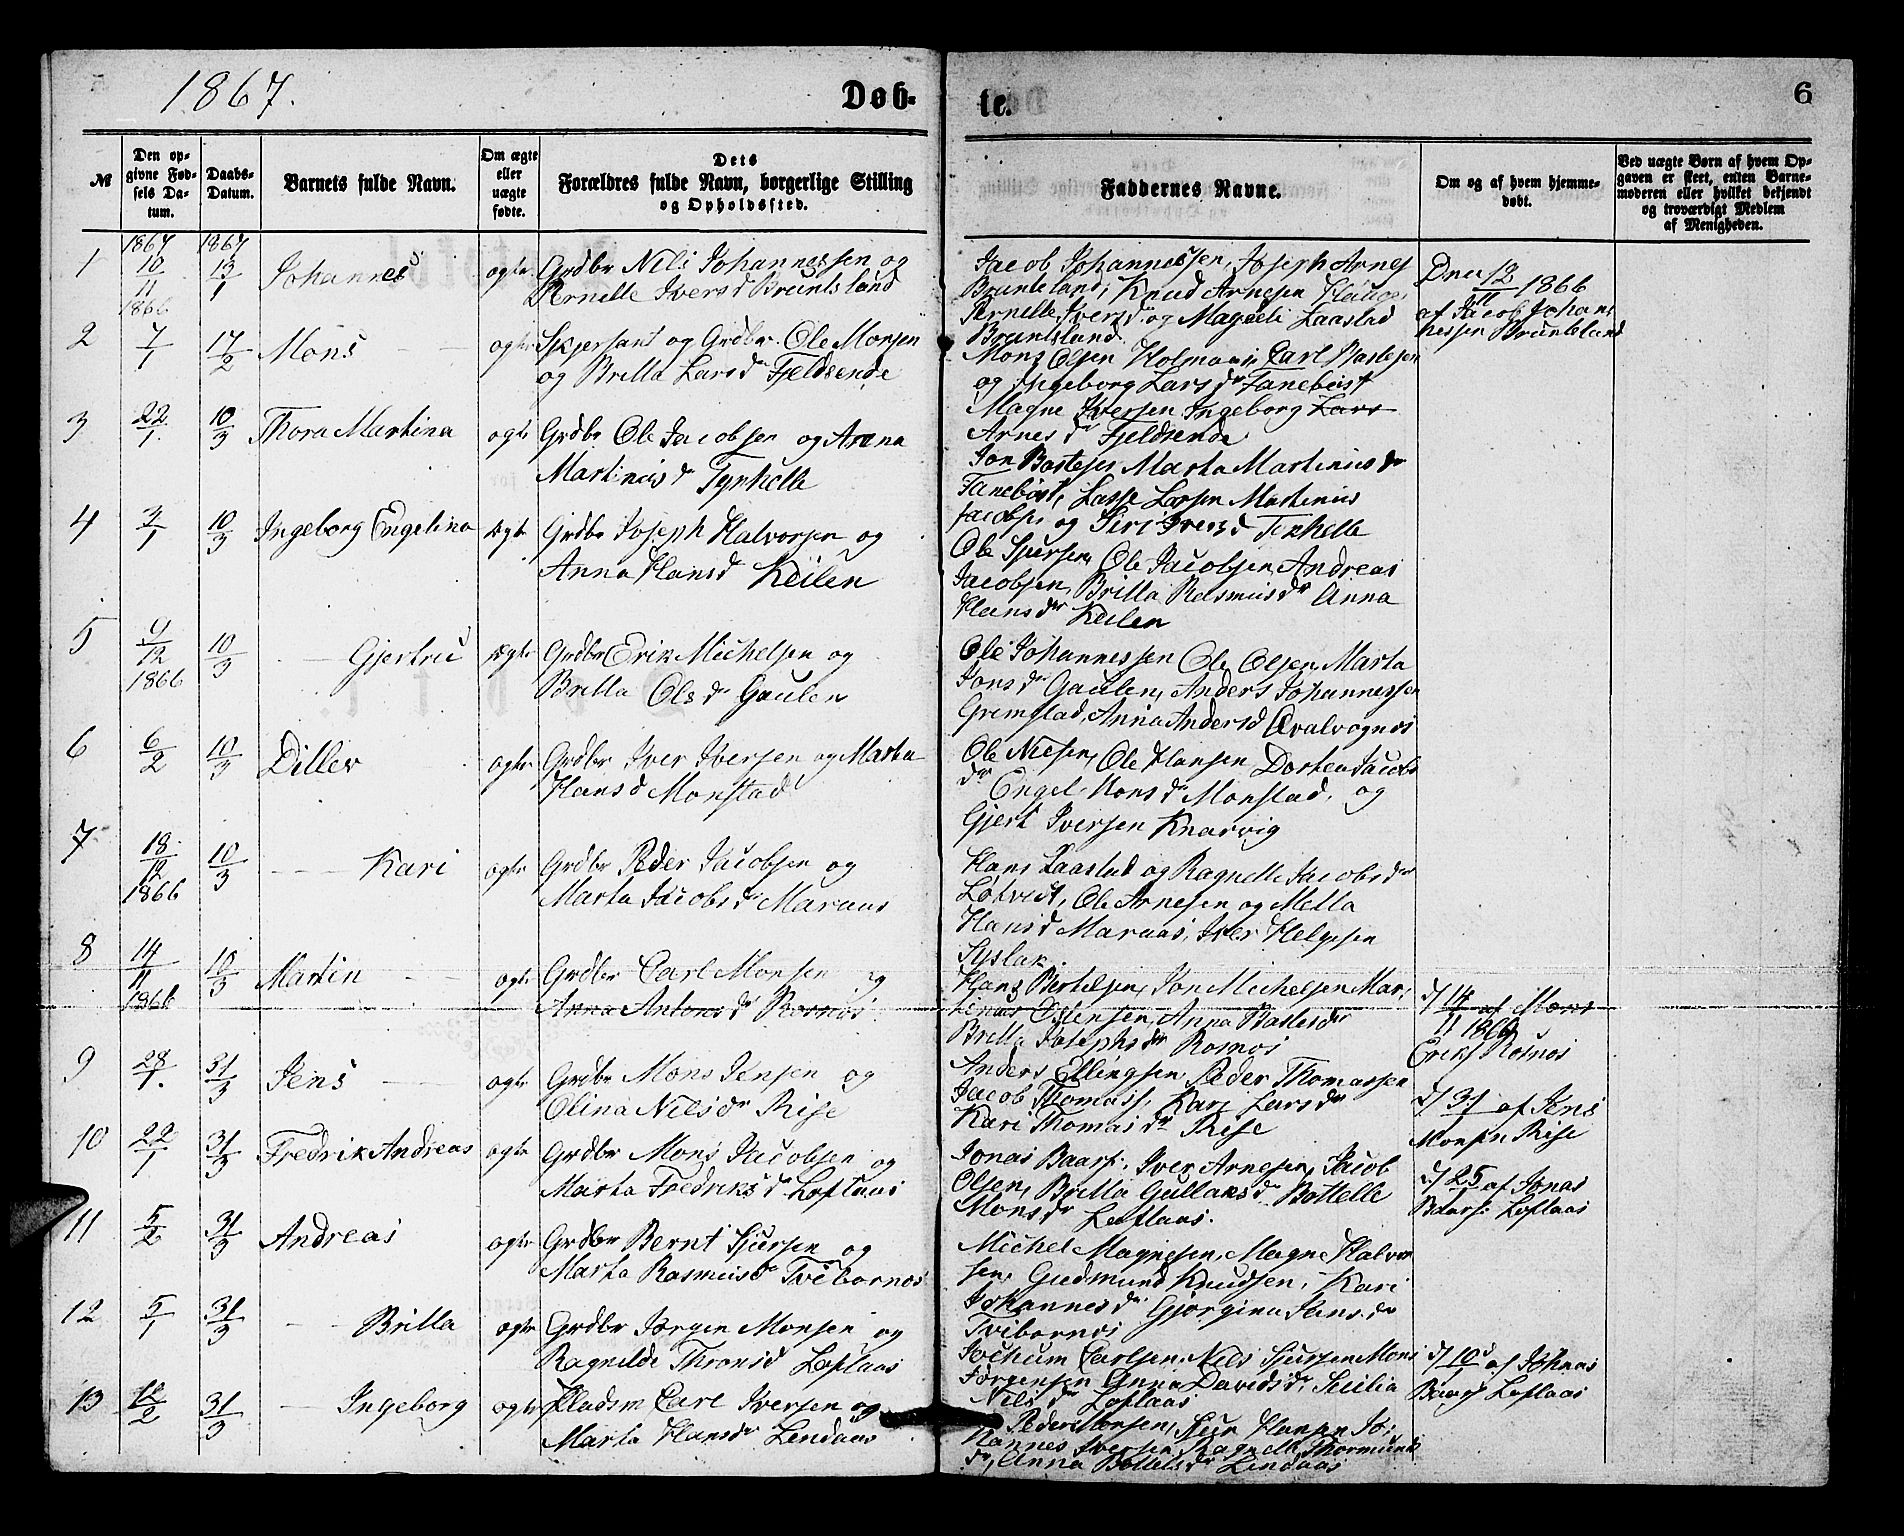 1867.
Døb-
te.
6
№
Den op-
givne Fød-
sels Da-
tum.
Daabs-
Datum.
Barnets fulde Navn.
Om ægte
eller
uægte
fødte.
Dets
Forældres fulde Navn, borgerlige Stilling
og Opholdssted.
Faddernes Navne.
Om og af hvem hjemme-
døbt.
Ved uægte Børn af hvem Op-
gaven er skeet, enten Barne-
moderen eller hvilket bekjendt
og troværdigt Medlem
af Menigheden.
1
1867
10
11
1866
1867
13
1
Johannes
ogte
Grdbr Nils Johannessen og
Pernelle Iversd Bruntsland
Jacob Johannessen, Joseph Arnes
Knud Arnesen
Pernelle Iversd og Laastad
Bruntsland
Den 12
11 1866
af Jacob Johan
nessen
2
7
1
17
2
Mons
ogte
og Grdbr. Ole Monsen
og Britta Larsdr Fjeldsende
Mons Olsen Carl
og Ingeborg Larsdr Fanebust
Magne Iversen Ingeborg Lars
Arnesdr Fjeldsende
3
22
1.
10
3
Thora Martina
ogte
Grdbr Ole Jacobsen og Anna
Martinisdr
Marta Martinusdr
Fanebust, Lasse Larsen Martinus
Jacobs. og Siri Iversd
4
1
10
3
Ingeborg Engelina
ægte
Grdbr Joseph Halvorsen og
Anna Hansd Keilen
Ole Sjursen, Ole Jacobsen Andreas
Jacobsen, Britta Rasmusdr Anna
Hansdr Keilen
5
9
12
1866
10
3
Gjertru
ægte
Grdbr Erik Michelsen og
Britta Olsdr Gaulen
Ole Johannessen Ole Olsen, Marta
Jonsdr Gaulen, Anders Johannessen
Grimstad, Anna Andersd
6
6
2
10
3
Ditlev
ogte
Grdbr Iver Iversen og Marta
Hansd Monstad
Ole Nilsen, Ole Hansen Dorthea Jacobs
dr Engel Monsdr Monstad, og
Gjert Iversen Knarvig
7
18
12
1866
10
3
Kari
ogte
Grdbr Peder Jacobsen og
Marta Jacobsdr Maraas
Hans Laastad og Ragnelle Jacobsdr
Ole Arnesen og Metta
Hansd Maraas, Iver Helgesen
Syslak.
8
14
11
1866
10
3
Martin
ogte
Grdbr Carl Monsen og
Anna Antonsdr Rosnos
Hans Bertelsen, Jon Michelsen Mar
Anna
Britta Josephsdr Rosnos
d/ 14 af Mons
11 1866
Eriks Rosnos
9
28
1.
31
3
Jens
ogte
Grdbr Mons Jensen og
Olina Nilsdr Rise
Anders Ellingsen, Peder Thomassen
Jacob Thomass, Kari Larsdr
Kari Thomasdr Rise
d/ 31 af Jens
1
Monsen Rise
10
22
1
31
3
Fredrik Andreas
ogte
Grdbr Mons Jacobsen og
Marta Fredriksdr Loftaas
Jonas Baars. Iver Arnesen, Jacob
Olsen, Britta Gullaksdr Bottelle
Monsdr Loftaas.
d/ 25 af Jonas
Baars. Loftaas
11
5
2
31
3
Andreas
ogte
Grdbr Bernt Sjursen og
Marta Rasmusdr Tvibornos
Michel Magnesen, Magne Halvor
sen, Gudmund Knudsen, Kari
Johannesdr Gjørgina Jansdr
Tvibornos
12
5
1
31
3
Britta
ogte
Grdbr Jørgen Monsen og
Ragnilde Thronsd Loftaas
Jochum Carlsen, Nils Sjursen Mons
Jørgensen Anna Davidsdr, Sicilia
Nilsdr Loftaas
d/ 10 af Johnas
1
Baars Loftaas
13
12
2
31
3
Ingeborg
ogte
Pladsm Carl Iversen og
Marta Hansdr Lindaas
Peder Monsen, Sjur Hansen Jo-
hannes Iversen Ragnelle Thormunds
dr, Anna Lindaas